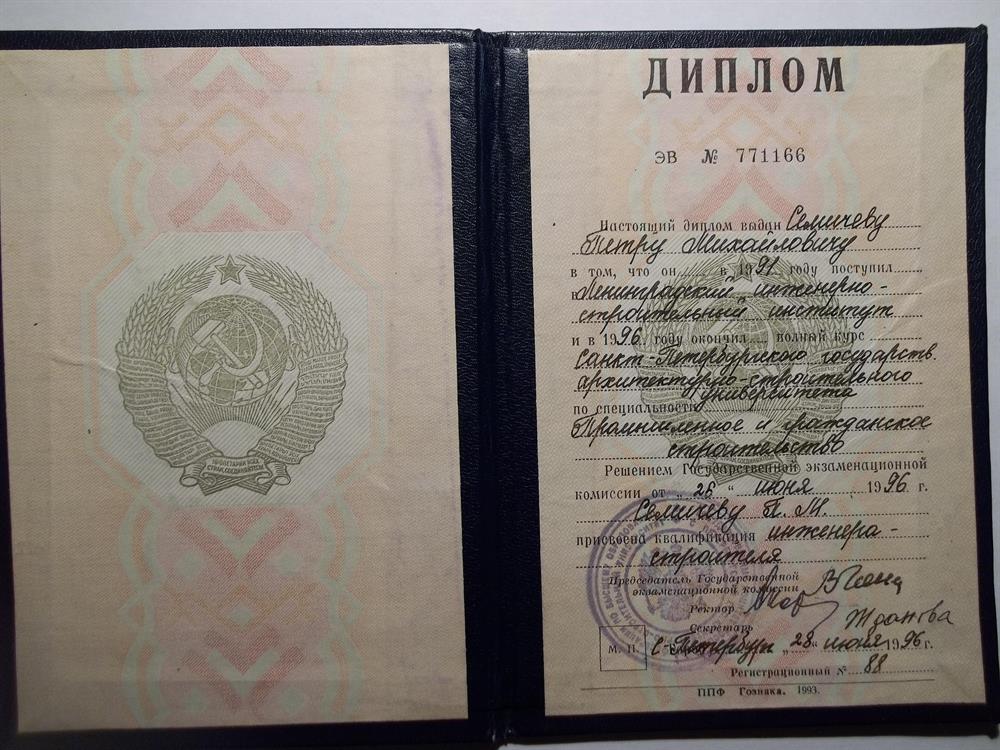 ПРОЛЕТАРИИ ВСЕХ
СТРАН, СОЕДИНЯЙТЕСЬ
ДИПЛОМ
ЭВ № 771166
Настоящий диплом выдан Семичеву
Петру Михайловичу
в том, что он в 1991 году поступил
в Ленинградский инженерно-
строительный институт
и в 1996 году окончил полный курс
Санкт-Петербургского государств.
архитектурно-строительного
университета
по специальности
Промышленное и гражданское
строительство
Решением Государственной экзаменационной
комиссии от „26“ июня 1996 г.
Семичеву П. М.
присвоена квалификация инженера-
строителя
Председатель Государственной
экзаменационной комиссии
Ректор
Секретарь
М. П. С-Петербург „28“ июня 1996 г.
Регистрационный № 88
ППФ Гознака. 1993.